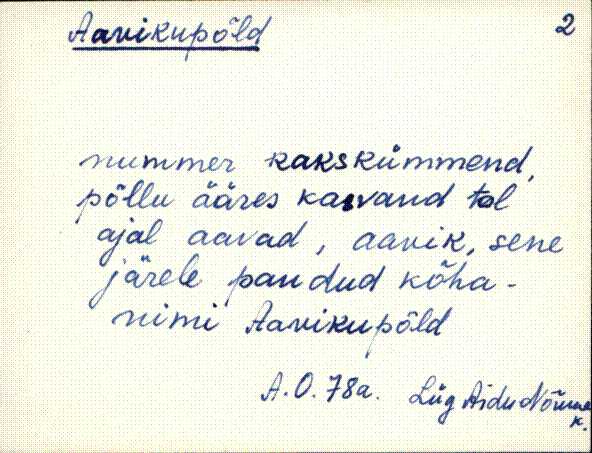 Aavikupõld 2
nummer kakskümmend,
põllu ääres kasvand tol
ajal aavad, aavik, sene
järele pandud kõha-
nimi Aavikupõld
A.O. 78a. Lüg Aidu Nõmme
k.